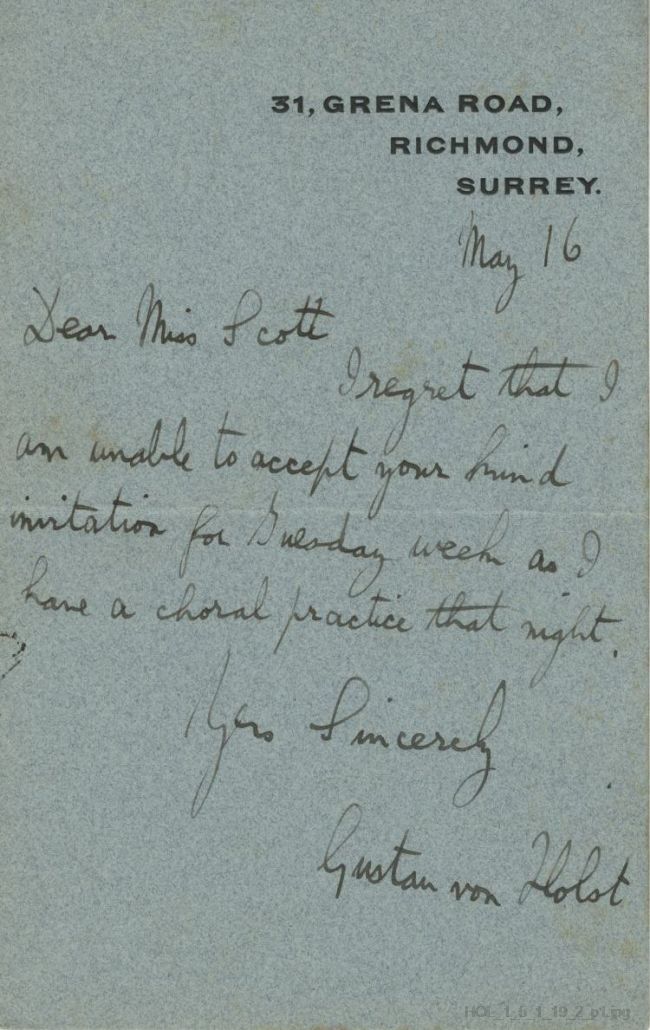 31, GRENA ROAD,
RICHMOND,
SURREY.
May 16
Dear Miss Scott
I regret that I
am unable to accept your kind
invitation for Tuesday week as I
have a choral practice that night.
Yrs Sincerely
Gustav von Holst
HOL_1_5_1_19_2 p1.jpg